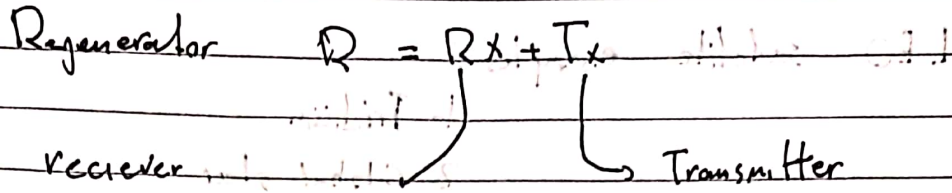 Regenerator R = Rx + Tx
reciever Transmitter